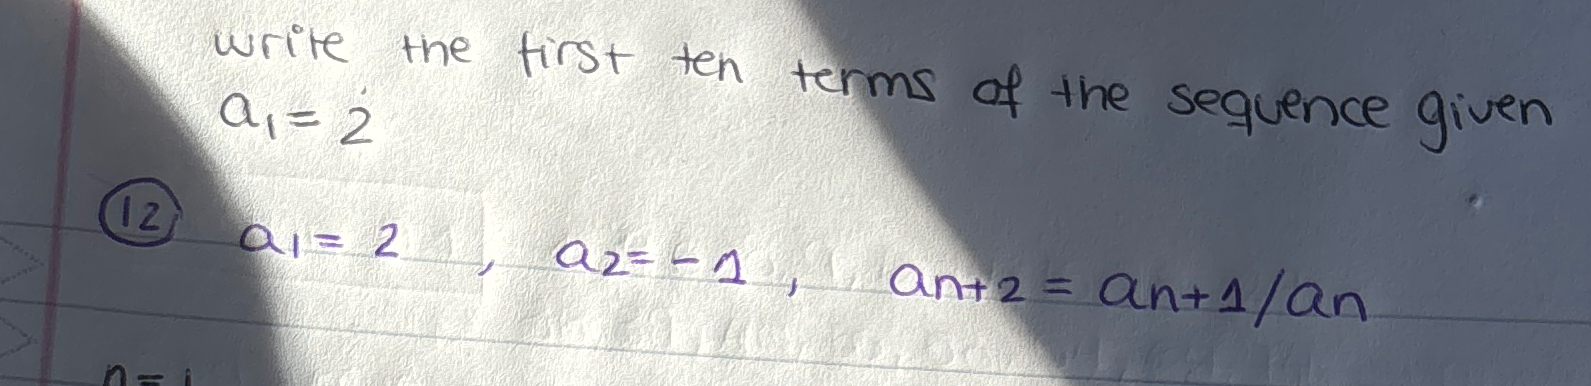 write the first ten terms of the sequence given
a₁ = 2
12 a1 = 2 , a2 = -1 , an+2 = an+1/an
n = 1